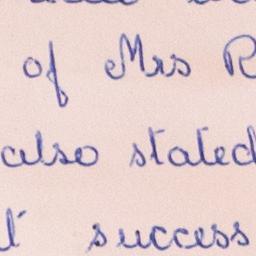 of Mrs R
also stated
success